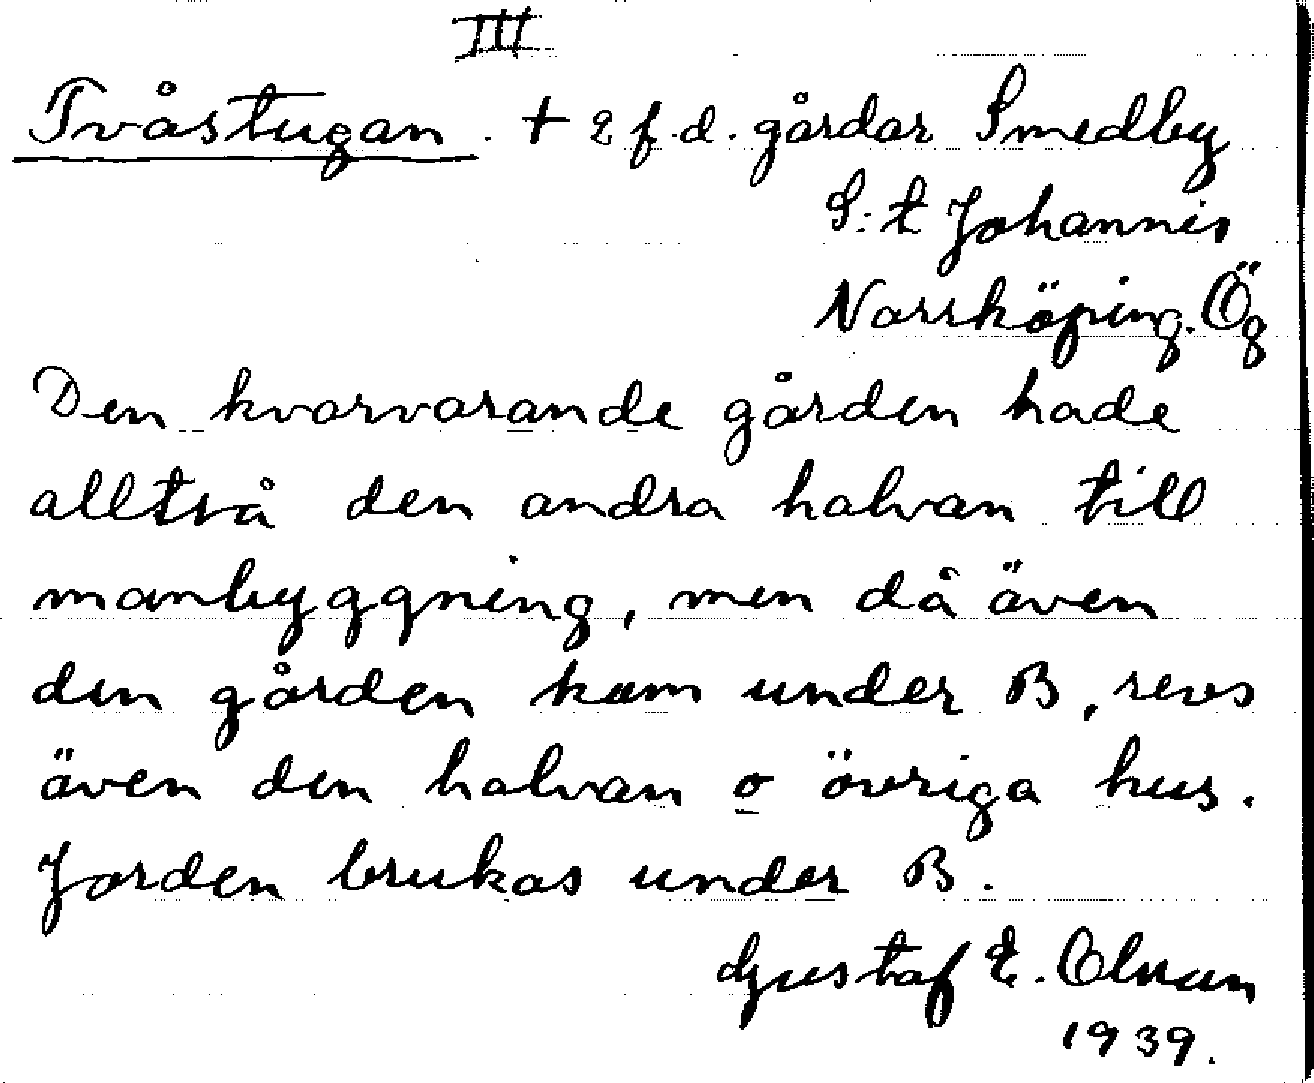 III
Tvåstugan. + 2 f.d. gårdar Smedby
S:t Johannis
Norrköping. Ög
Den kvarvarande gården hade
alltså den andra halvan till
manbyggning, men då även
den gården kom under B, revs
även den halvan o övriga hus.
Jorden brukas under B.
Gustaf E.
1939.